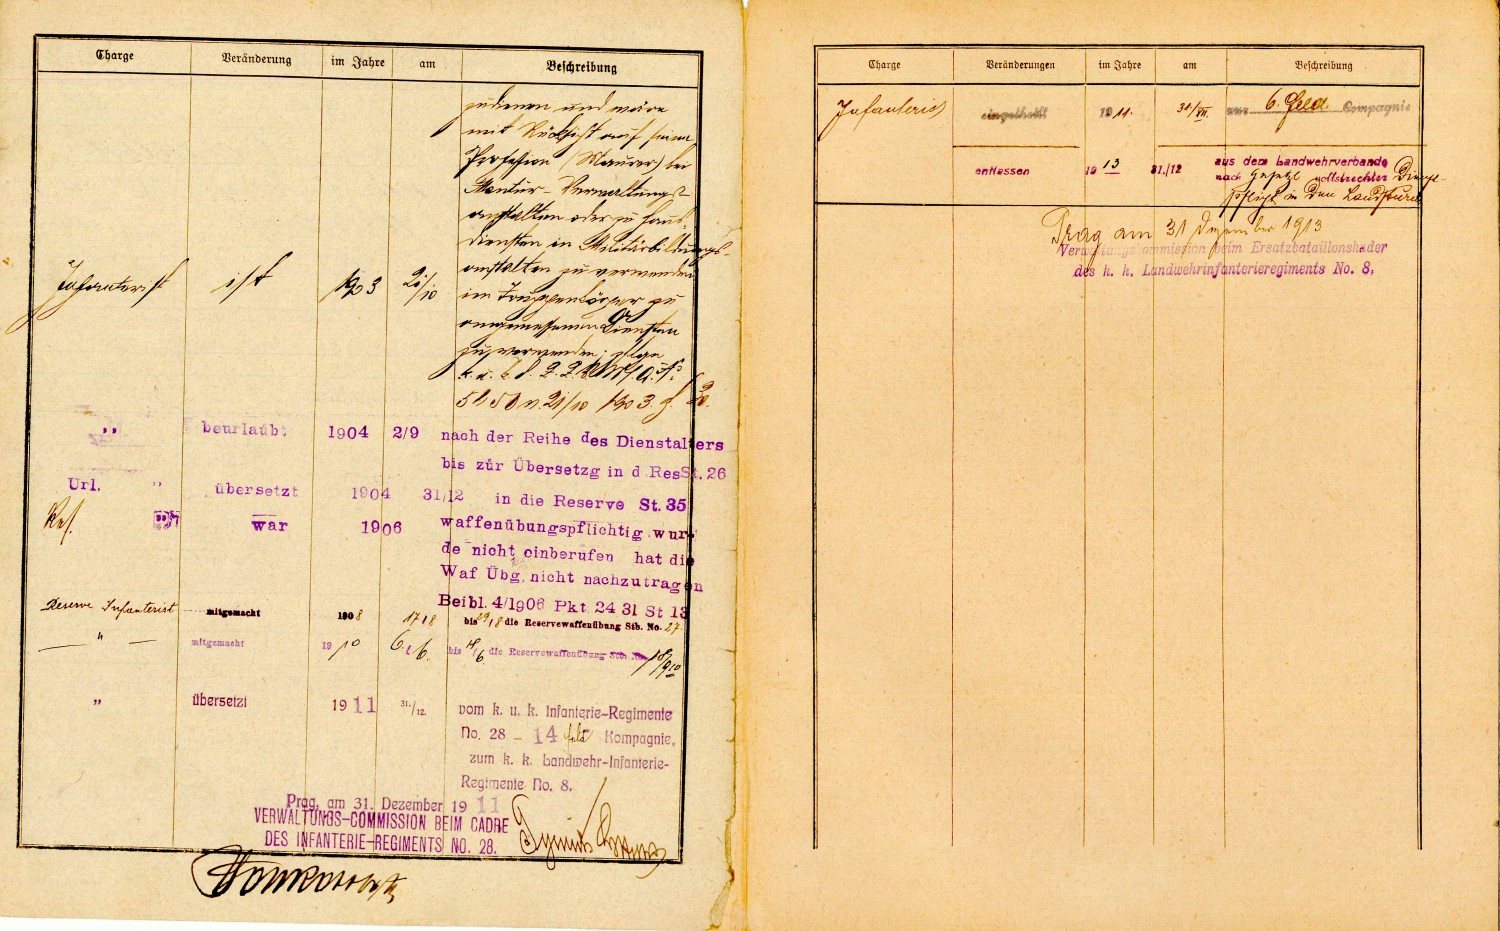 Charge Veränderung im Jahre am Beschreibung
zu dienen und wäre
mit Rücksicht auf seine
Profession (Maurer) bei
Montur-Verwaltungs-
anstalten oder zu Haus-
diensten in Militärbildungs-
anstalten zu verwenden
Infanterist ist 1903 21/10 im Truppenkörper zu
angemessenen Diensten
zu verwenden;
1903
„ beurlaubt 1904 2/9 nach der Reihe des Dienstalters
bis zür Übersetzg in d ResSt. 26
Url. „ übersetzt 1904 31/12 in die Reserve St. 35
Res. war 1906 waffenübungspflichtig wur-
de nicht einberufen hat die
Waf Übg, nicht nachzutragen
Beibl. 4/1906 Pkt 24 31 St 13
Reserve Infanterist mitgemacht 1908 17/8 bis 29/8 die Reservewaffenübung Stb. No. 27.
„ mitgemacht 1910 6/6. bis die Reservewaffenübung Stb. No.
„ übersetzt 1911 31./12. vom k. u. k. Infanterie-Regimente
No. 28 – 14 Feld Kompagnie,
zum k. k. Landwehr-Infanterie-
Regimente No. 8.
Prag, am 31. Dezember 1911
VERWALTUNGS-COMMISSION BEIM CADRE
DES INFANTERIE-REGIMENTS NO. 28.
Charge Veränderungen im Jahre am Beschreibung
Infanterist eingeteilt 1911. 31/XII. zur 6. Feld Compagnie
entlassen 1913 31./12 aus dem Landwehrverbande
nach Gesetzl vollstreckter Dienst-
pflicht in den Landsturm
Prag am 31 Dezember 1913
Verwaltungscommission beim Ersatzbataillonskader
des k. k. Landwehrinfanterieregiments No. 8,